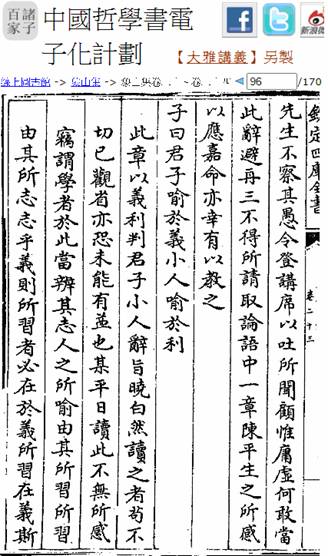 諸子
百家
中國哲學書電
子化計劃
【大雅講義】另製
96 /170
欽定四庫全書
卷二十三
先生不察其愚令登講席以吐所聞顧惟庸虛何敢當
此辭避再三不得所請取論語中一章陳平生之所感
以應嘉命亦幸有以教之
子曰君子喻於義小人喻於利
此章以義利判君子小人辭旨曉白然讀之者苟不
切己觀省亦恐未能有益也某平日讀此不無所感
竊謂學者於此當辨其志人之所喻由其所習所習
由其所志志乎義則所習者必在於義所習在義斯